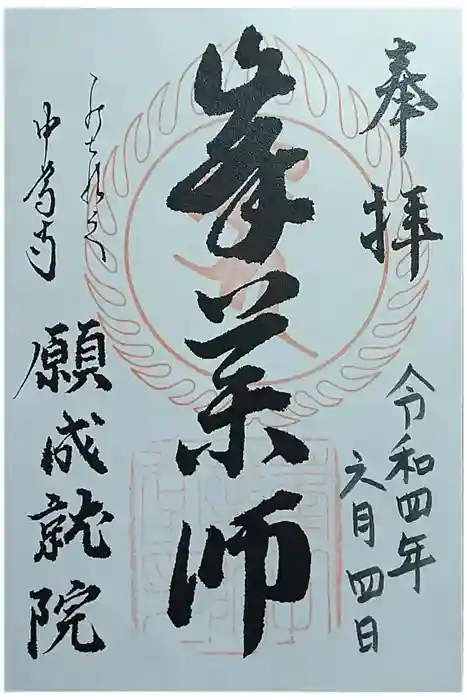 奉拝
令和四年
六月四日
峯薬師
中尊寺
願成就院